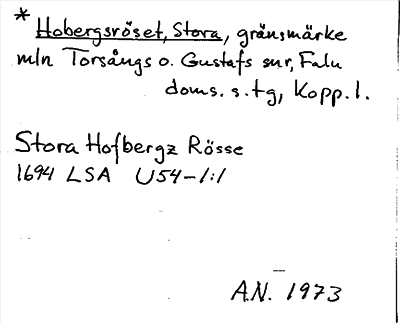 * Hobergsröset, Stora, gränsmärke
mln Torsångs o. Gustafs snr, Falu
doms. s. tg, Kopp. l.
Stora Hofbergz Rösse
1694 LSA U54-1:1
A.N. 1973